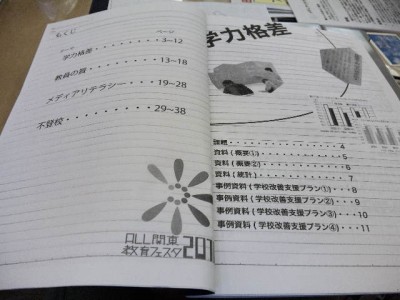 もくじ
テーマ ページ
学力格差・・・・・・・・・3~12
教員の質・・・・・・・・・13~18
メディアリテラシー・・・・19~28
不登校・・・・・・・・・・29~38
ALL関東
教育フェスタ201
学力格差
課題・・・・・・・・・・・・・・・4
資料(概要①)・・・・・・・・・・5
資料(概要②)・・・・・・・・・・6
資料(統計)・・・・・・・・・・・7
事例資料(学校改善支援プラン①)・・・8
事例資料(学校改善支援プラン②)・・・9
事例資料(学校改善支援プラン③)・・・10
事例資料(学校改善支援プラン④)・・・11